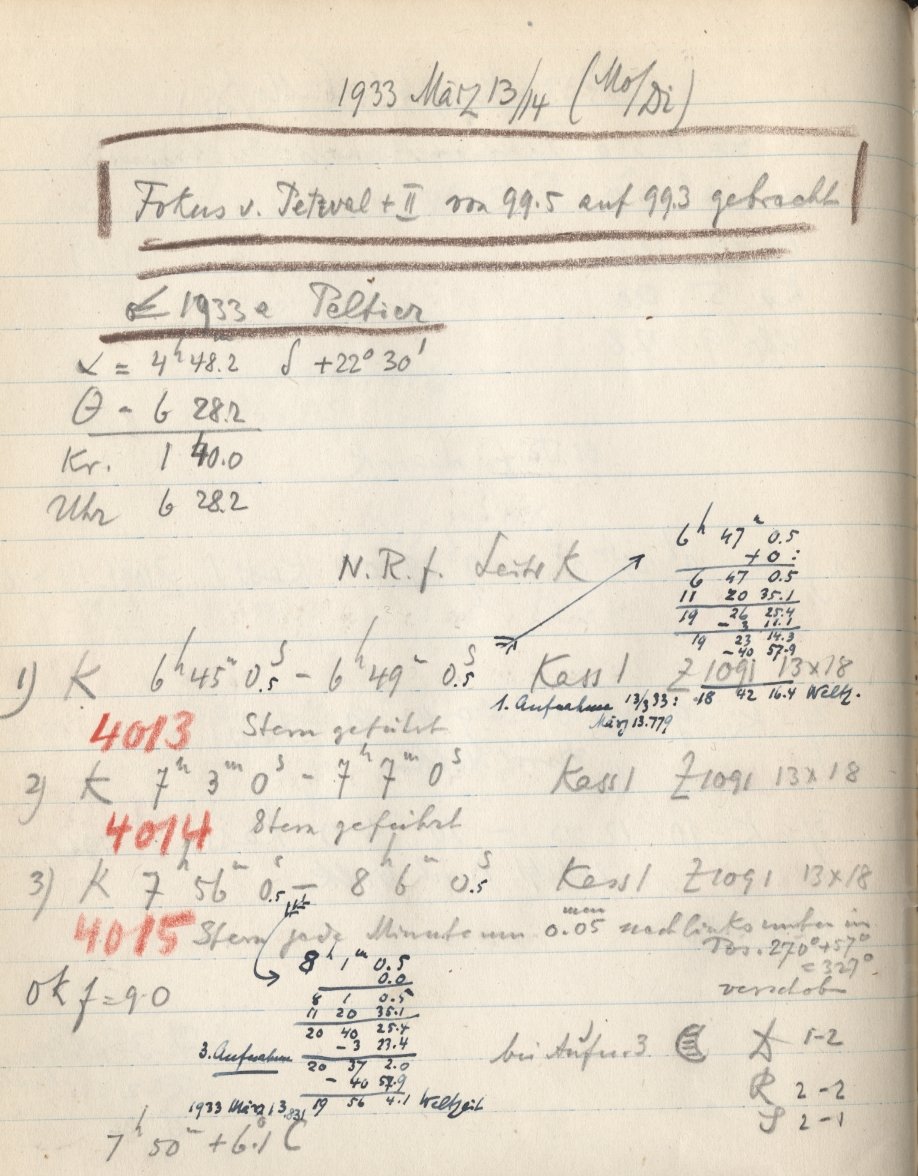 1933 März 13/14 (Mo/Di)
Fokus v. Petzval + II von 99.5 auf 99.3 gebracht
1933a Peltier
α = 4h 48.2m δ +22° 30'
θ = 6 28.2
Kr. 1h 40.0
Uhr 6 28.2
N.R.f. K
6h 47m 0.5
+0 :
6 47 0.5
11 20 35.1
19 26 25.4
-3 11.1
19 23 14.3
-40 57.9
1) K 6h 45m 0.5s - 6h 49m 0.5s Kass 1 Z 1091 13x18
1. Aufnahme 13/3 33: 18 42 16.4 Weltz.
März 13.779
4013 Stern geführt
2) K 7h 3m 0s - 7h 7m 0s Kass 1 Z 1091 13x18
4014 Stern geführt
3) K 7h 56m 0.5s - 8h 6m 0.5s Kass 1 Z 1091 13x18
4015 Stern jede Minute um 0.05 mm nach links unten in
Pos. 270°+57°
= 327°
verschoben
8h 1m 0.5
0.0
8 1 0.5
11 20 35.1
20 40 25.4
-3 23.4
3. Aufnahme 20 37 2.0
- 40 57.9
1933 März 13.831 19 56 4.1 Weltzeit
Ok f = 90
bei Aufn. 3 D 1-2
R 2-2
S 2-1
7h 50m +6.1°C